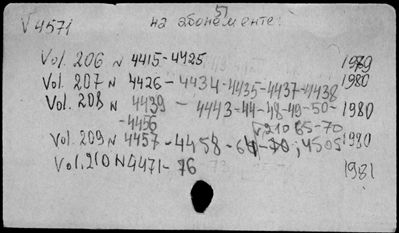 V 4571 на абонементе 51
Vol. 206 N 4415-4425 1979
Vol. 207 N 4426-4434-4435-4437-4438 1980
Vol. 208 N 4439 - 4443-44-48-49-50- 1980
-4456 V210 65-70
Vol. 209 N 4457-4458-61-70; 4505 1980
Vol. 210 N 4471-76 1981